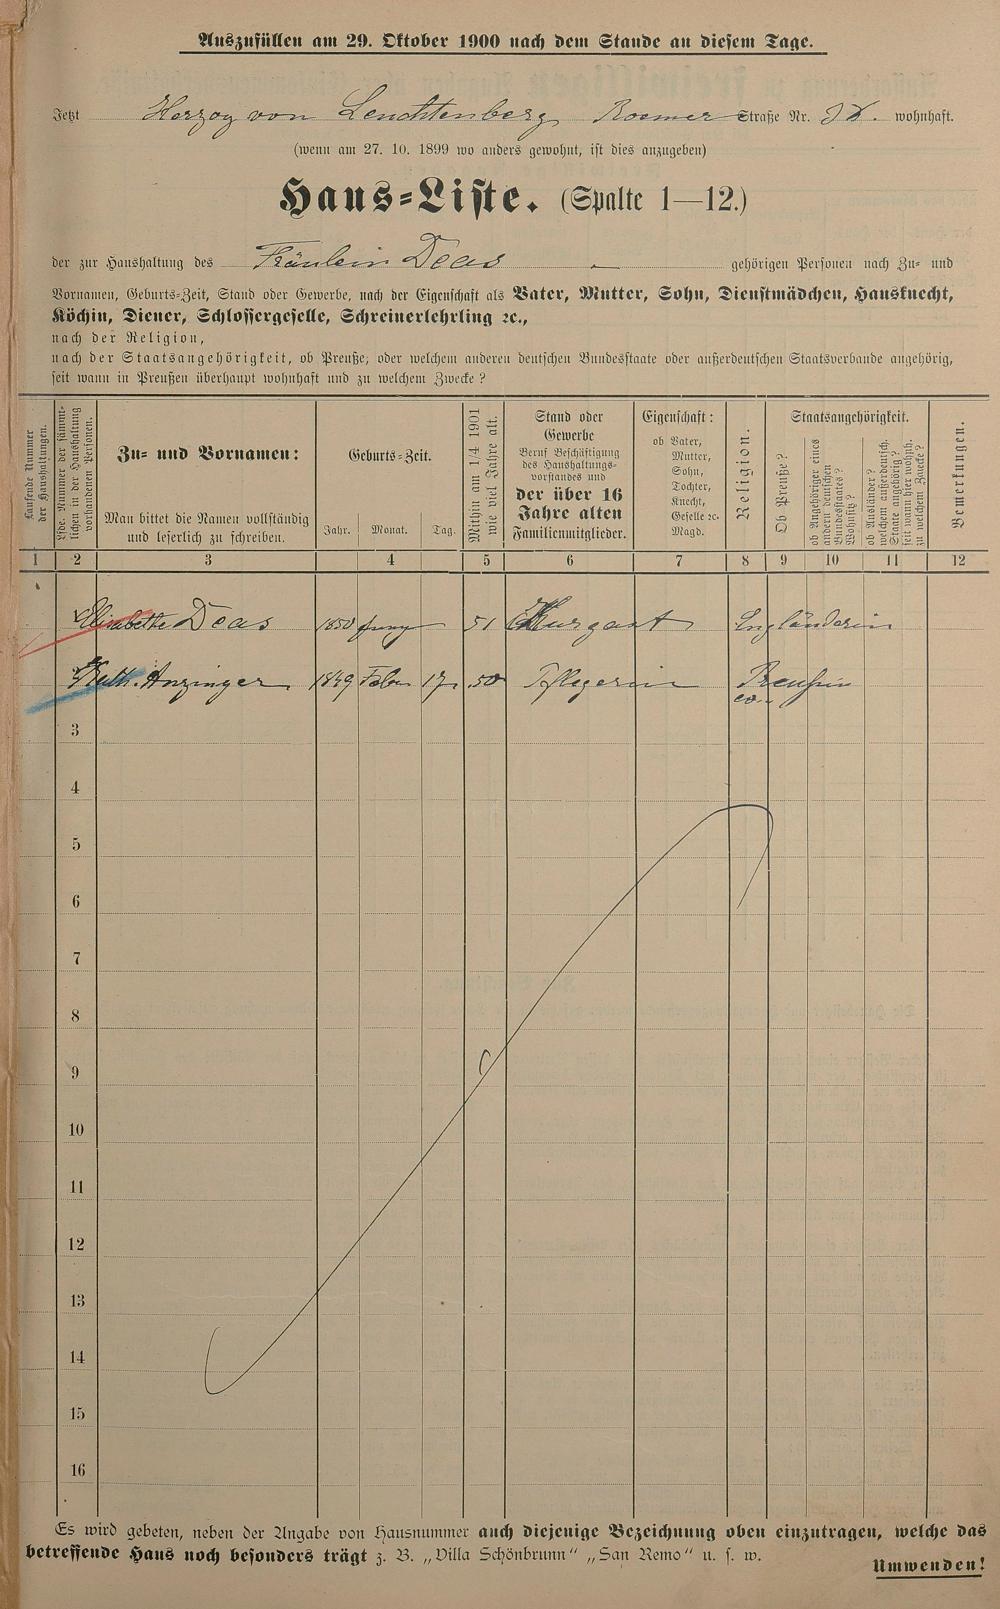 Auszufüllen am 29. Oktober 1900 nach dem Stande an diesem Tage.
Jetzt Herzog von Leuchtenberg Roemer Straße Nr. wohnhaft.
(wenn am 27. 10. 1899 wo anders gewohnt, ist dies anzugeben)
Haus-Liste. (Spalte 1—12.)
der zur Haushaltung des Fräulein Deas gehörigen Personen nach Zu- und
Vornamen, Geburts-Zeit, Stand oder Gewerbe, nach der Eigenschaft als Vater, Mutter, Sohn, Dienstmädchen, Hausknecht,
Köchin, Diener, Schlossergeselle, Schreinerlehrling ꝛc.,
nach der Religion,
nach der Staatsangehörigkeit, ob Preuße, oder welchem anderen deutschen Bundesstaate oder außerdeutschen Staatsverbande angehörig,
seit wann in Preußen überhaupt wohnhaft und zu welchem Zwecke?
Laufende Nummer
der Haushaltungen.
Lfde. Nummer der sämmt-
lichen in der Haushaltung
vorhandenen Personen.
Zu- und Vornamen:
Man bittet die Namen vollständig
und leserlich zu schreiben.
Geburts-Zeit.
Jahr. Monat. Tag.
Mithin am 1/4 1901
wie viel Jahre alt.
Stand oder
Gewerbe
Beruf Beschäftigung
des Haushaltungs-
vorstandes und
der über 16
Jahre alten
Familienmitglieder.
Eigenschaft:
ob Vater,
Mutter,
Sohn,
Tochter,
Knecht,
Geselle ꝛc.
Magd.
Religion.
Staatsangehörigkeit.
Ob Preuße?
ob Angehöriger eines
andern deutschen
Bundesstaates?
Wohnsitz?
ob Ausländer?
welchem außerdeutsch.
Staate angehörig?
seit wann hier wohnh.
zu welchem Zwecke?
Bemerkungen.
1 2 3 4 5 6 7 8 9 10 11 12
Elisabethe Deas 1850 Juny 51 Kurgast Engländerin
Kath. Anzinger 1849 Febr 17 50 Pflegerin Preußin
ev.
3
4
5
6
7
8
9
10
11
12
13
14
15
16
Es wird gebeten, neben der Angabe von Hausnummer auch diejenige Bezeichnung oben einzutragen, welche das
betreffende Haus noch besonders trägt z. B. „Villa Schönbrunn“ „San Remo“ u. s. w.
Umwenden!